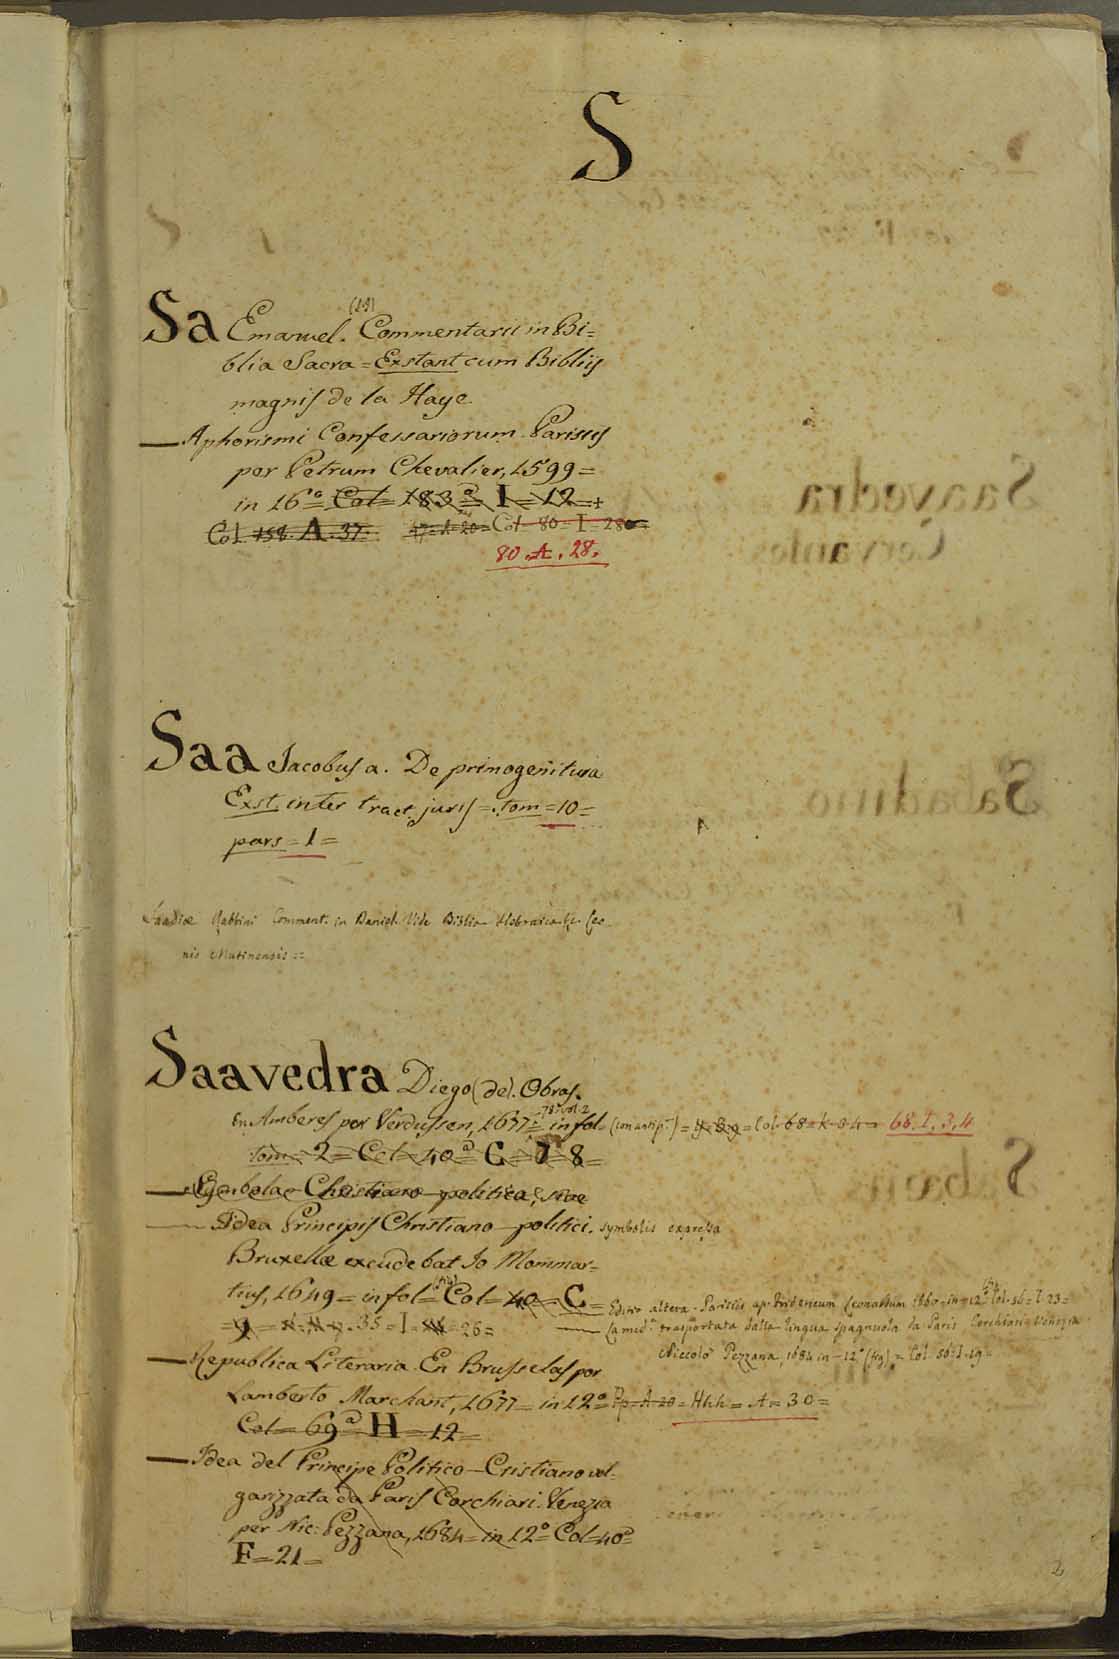 S
Sa Emanuel. Commentarii in Bi=
blia Sacra = Exstant cum Bibliis
magnis de la Haye.
— Aphorismi Confessariorum. Parisiis
per Petrum Chevalier, 1599 =
in 16° Col = 183ª = I = 12 =
Col. 158. A. 37. Col = 80 = I = 28
80. A. 28.
Saa Jacobus a. De primogenitura
Exst. inter tract. juris = tom = 10 =
pars = 1 =
Saadiæ Rabbini Comment. in Daniel. Vide Biblia Hebraica
nis Mutinensis =
Saavedra Diego (de). Obras.
En Amberes per Verdussen, 1677 = in fol = Col. 68 = k = 3 4 = 68. I. 3, 4
tom = 2 = Col = 40ª C = 8 =
— Symbola Christiano politica, sive
— Idea Principis Christiano-politici. symbolis expressa
Bruxellæ excudebat Jo Mommar=
tius, 1649 = in fol = (fig) Col = 40 = C =
35 = I = 26 =
Editio altera. Parisiis ap. Fridericum Leonardum 1660 = in = 12° Col. 56 = I. 23 =
— La med.ª trasportata dalla lingua spagnuola da Paris Cerchiari. Venezia
Niccolò Pezzana, 1684 in = 12° (fig) = Col. 56. I. 19 =
— Republica Literaria. En Brusselas por
Lamberto Marchant, 1677 = in 12° Pp = A 20 = Hhh = A = 30 =
Col = 69ª H = 12 =
— Idea del Principe Politico-Cristiano vol-
garizzata da Paris Cerchiari. Venezia
per Nic: Pezzana, 1684 = in 12° = Col = 40ª
F = 21 =
2